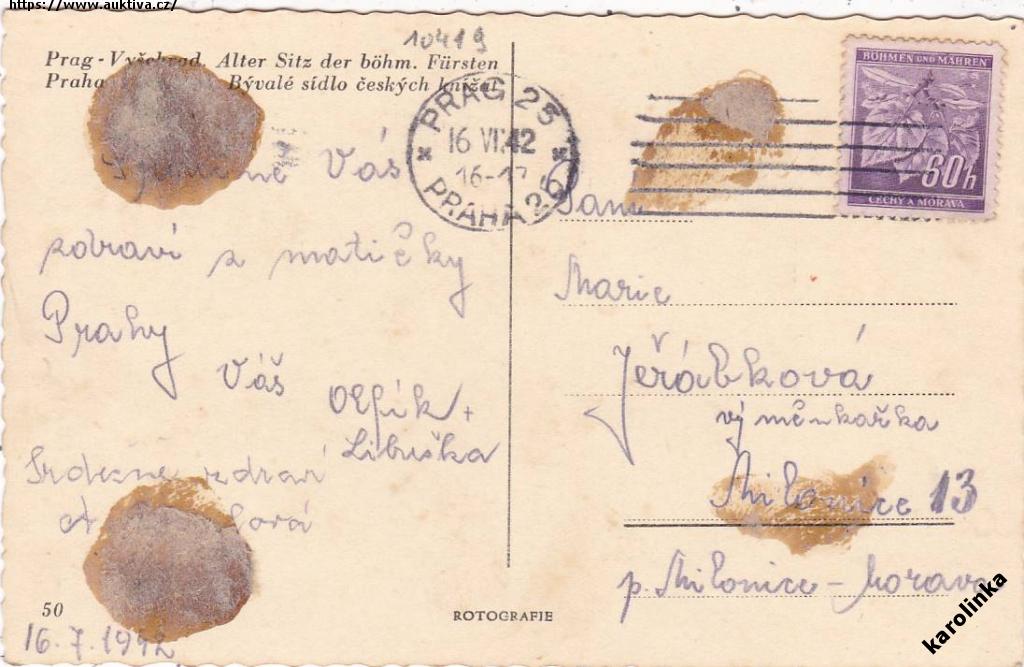 https://www.auktiva.cz/
10419
Prag - Vyšehrad. Alter Sitz der böhm. Fürsten
Praha Bývalé sídlo českých knížat
PRAG 25
16 VII 42
16-17
PRAHA 25
BÖHMEN UND MÄHREN
60h
ČECHY A MORAVA
Vás
zdraví z matičky
Prahy
Váš
Olfík +
Libuška
Srdečně zdraví
50
16.7.1942
ROTOGRAFIE
Paní
Marie
Jeřábková
výměnkařka
Milonice 13
p. Milonice - Morava
karolinka